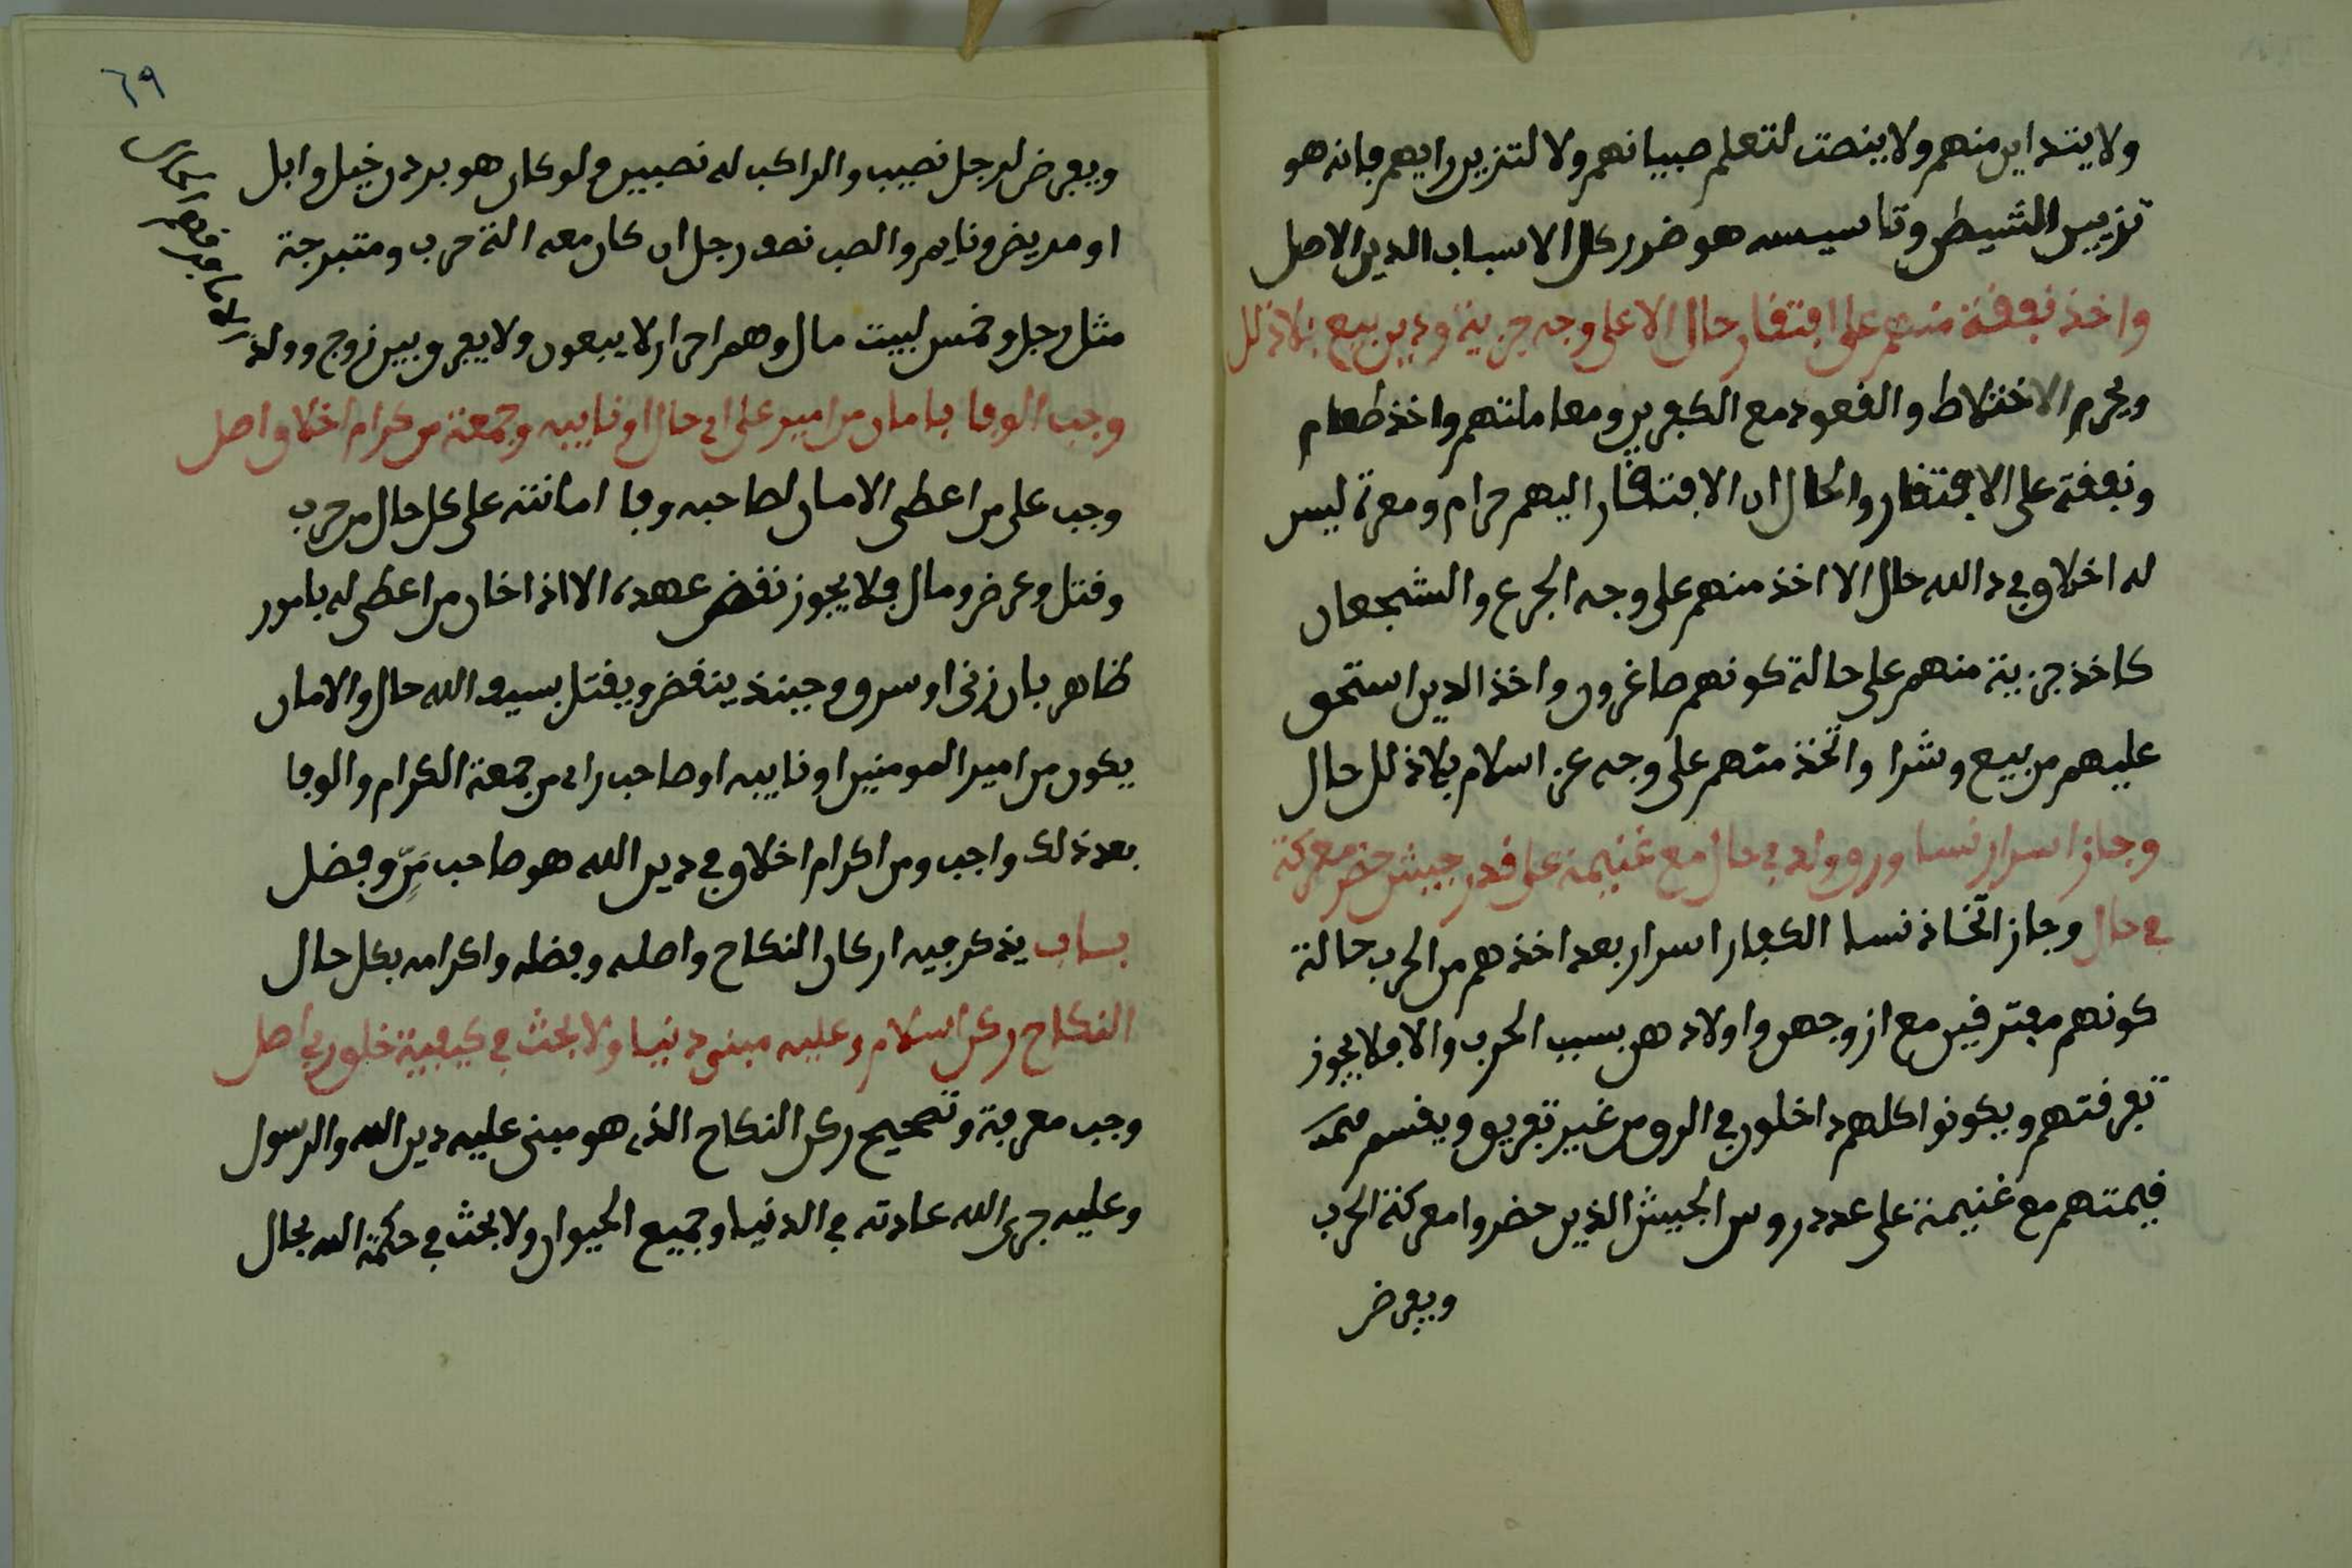 ولا يتداين منهم ولا ينصت لتعلم صبيانهم ولا لتزيين رايهم فانه هو
تزيين الشيطن وتاسيسه هو ضرر كل الاسباب الدين الاصل
واخذ نفقة منهم على افتقار حال الا على وجه جزية ودين بيع بلا ذلل
ويحرم الاختلاط والقعود مع الكفرين ومعاملتهم واخذ طعام
ونفقة على الافتقار والحال ان الافتقار اليهم حرام ومعرة ليس
له اخلاق في د الله حال الا اخذ منهم على وجه الجرع والشجعان
كاخذ جزية منهم على حالة كونهم صاغرون واخذ الدين استحق
عليهم من بيع وشرا واتخذ منهم على وجه عز اسلام بلا ذلل حال
وجاز اسرار نسا ورق وولد في حال مع غنيمة على قدر جيش حضر معركة
في حال وجاز اتخاذ نسا الكفار اسرار بعد اخذهم من الحرب حالة
كونهم مفترقين مع ازوجهن واولادهن بسبب الحرب والا فلا يجوز
تفرقتهم ويكونوا كلهم داخلون في الرق من غير تفريق ويقسم
قيمتهم مع غنيمة على عدد روس الجيش الذين حضروا معركة الحرب
ويفرض
٦٩
ويفرض لرجل نصيب والراكب له نصيبين ولو كان هو برذن خيل وابل
او مريض ونايم والصب نصف رجل ان كان معه الة حرب ومتبرجة
مثل رجل وخمس لبيت مال وهم احرار لا يبعون ولا يفرق بين زوج وولد
وجب الوفا بامان من امير على اي حال او نايبه وجمعة من كرام اخلاق اصل
وجب على من اعطى الامان لصاحبه وفا امانته على كل حال من حرب
وقتل وعرض ومال فلا يجوز نقض عهده الا اذا خان من اعطى له بامور
ظاهر بان زنى او سرق وحينئذ ينقض ويقتل بسيف الله حال والامان
يكون من امير المومنين او نايبه او صاحب راي من جمعة الكرام والوفا
بعد ذلك واجب ومن اكرام اخلاق في دين الله هو صاحب مَرٍّ وفضل
باب يذكر فيه اركان النكاح واصله وفضله واكرامه بكل حال
النكاح ركن اسلام وعليه مبنى دنيا ولا بحث في كيفية خلق ربي اصل
وجب معرفة وتصحيح ركن النكاح الذي هو مبنى عليه دين الله والرسول
وعليه جرى الله عادته في الدنيا وجميع الحيوان ولا بحث في حكمة الله بحال